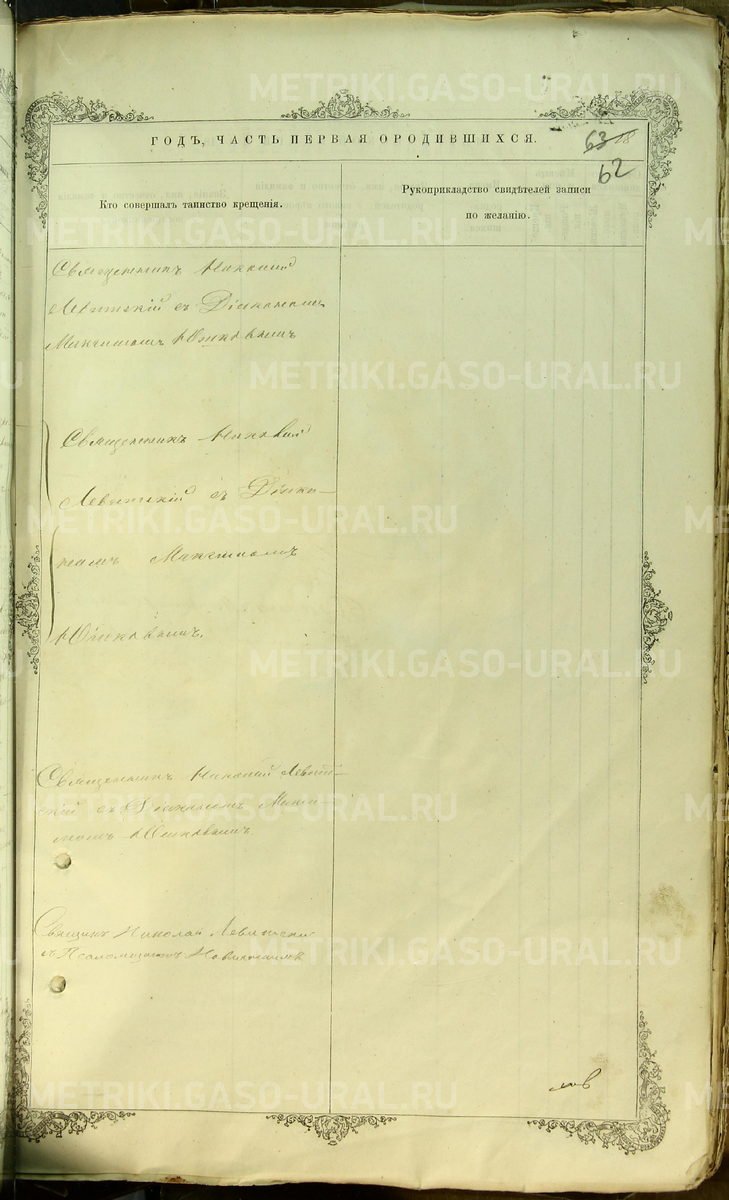 METRIKI.GASO-URAL.RU
ГОДЪ, ЧАСТЬ ПЕРВАЯ О РОДИВШИХСЯ.
63
62
Кто совершалъ таинство крещенія.
Рукоприкладство свидѣтелей записи
по желанію.
METRIKI.GASO-URAL.RU
METRIKI.GASO-URAL.RU
Священникъ Николай
Левитскій съ Діакономъ
Максимомъ Юшковымъ
METRIKI.GASO-URAL.RU
Священникъ Николай
Левитскій съ Діако-
METRIKI.GASO-URAL.RU
номъ Максимомъ
Юшковымъ.
METRIKI.GASO-URAL.RU
Священникъ Николай Левит-
скій съ Діакономъ Макси-
момъ Юшковымъ
METRIKI.GASO-URAL.RU
Николай Левитскій
съ Псаломщикомъ
METRIKI.GASO-URAL.RU
METRIKI.GASO-URAL.RU